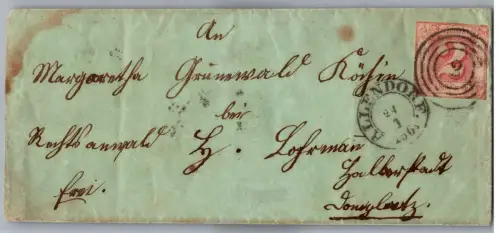 An
Margaretha Grünewald Köchin
bei
Rechtsanwald H. Lohrman
Halberstadt
Domplatz.
frei.
ALLENDORF.
24
1
186
2